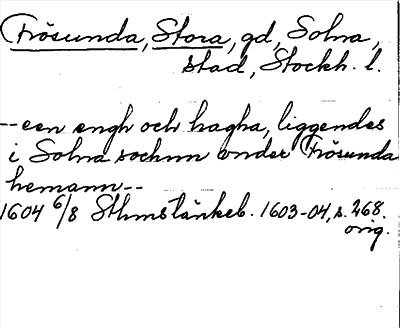 Frösunda, Stora, gd, Solna,
stad, Stockh. l.
--een engh och hagha, liggendes
i Solna sochnn under Frösunda
hemann--
1604 6/8 Sthms tänkeb. 1603-04, s. 268.
orig.